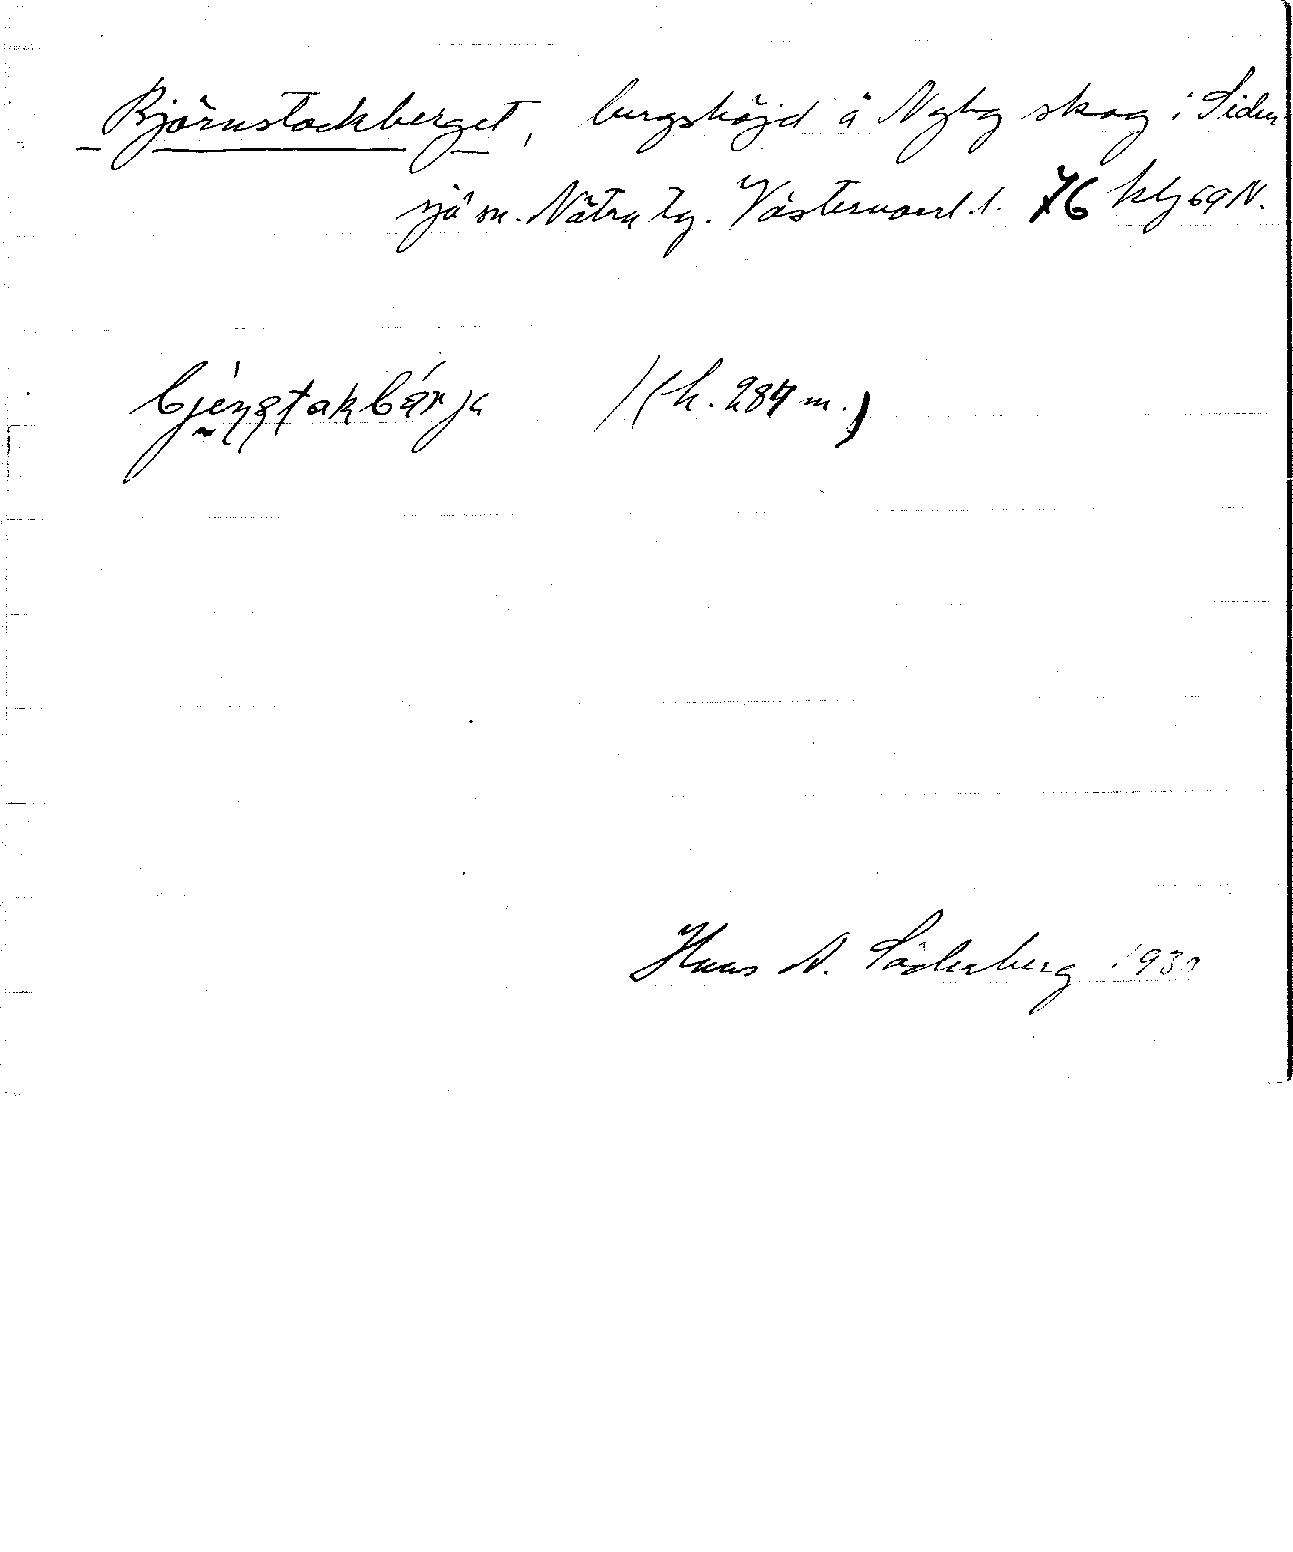 Björnstockberget, bergshöjd å Nyby skog i Siden
sjö sn. Nätra tg. Västernorrl. l. 76 Klg 69 N.
(h. 284 m.)
Hans N. Söderberg 1930